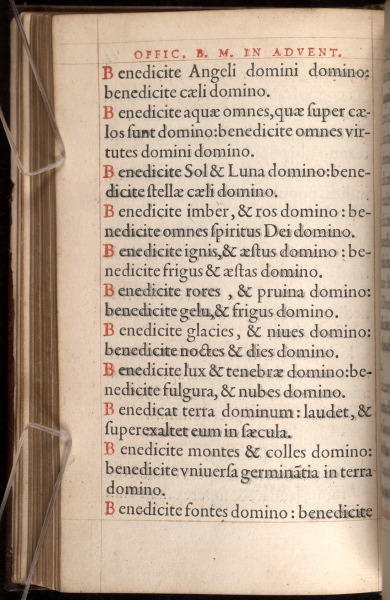 OFFIC. B. M. IN ADVENT.
Benedicite Angeli domini domino:
benedicite cæli domino.
Benedicite aquæ omnes, quæ ſuper cæ-
los ſunt domino: benedicite omnes vir-
tutes domini domino.
Benedicite Sol & Luna domino: bene-
dicite ſtellæ cæli domino.
Benedicite imber, & ros domino: be-
nedicite omnes ſpiritus Dei domino.
Benedicite ignis, & æſtus domino: be-
nedicite frigus & æſtas domino.
Benedicite rores, & pruina domino:
benedicite gelu, & frigus domino.
Benedicite glacies, & niues domino:
benedicite noctes & dies domino.
Benedicite lux & tenebræ domino: be-
nedicite fulgura, & nubes domino.
Benedicat terra dominum: laudet, &
superexaltet eum in ſæcula.
Benedicite montes & colles domino:
benedicite vniuerſa germinãtia in terra
domino.
Benedicite fontes domino: benedicite